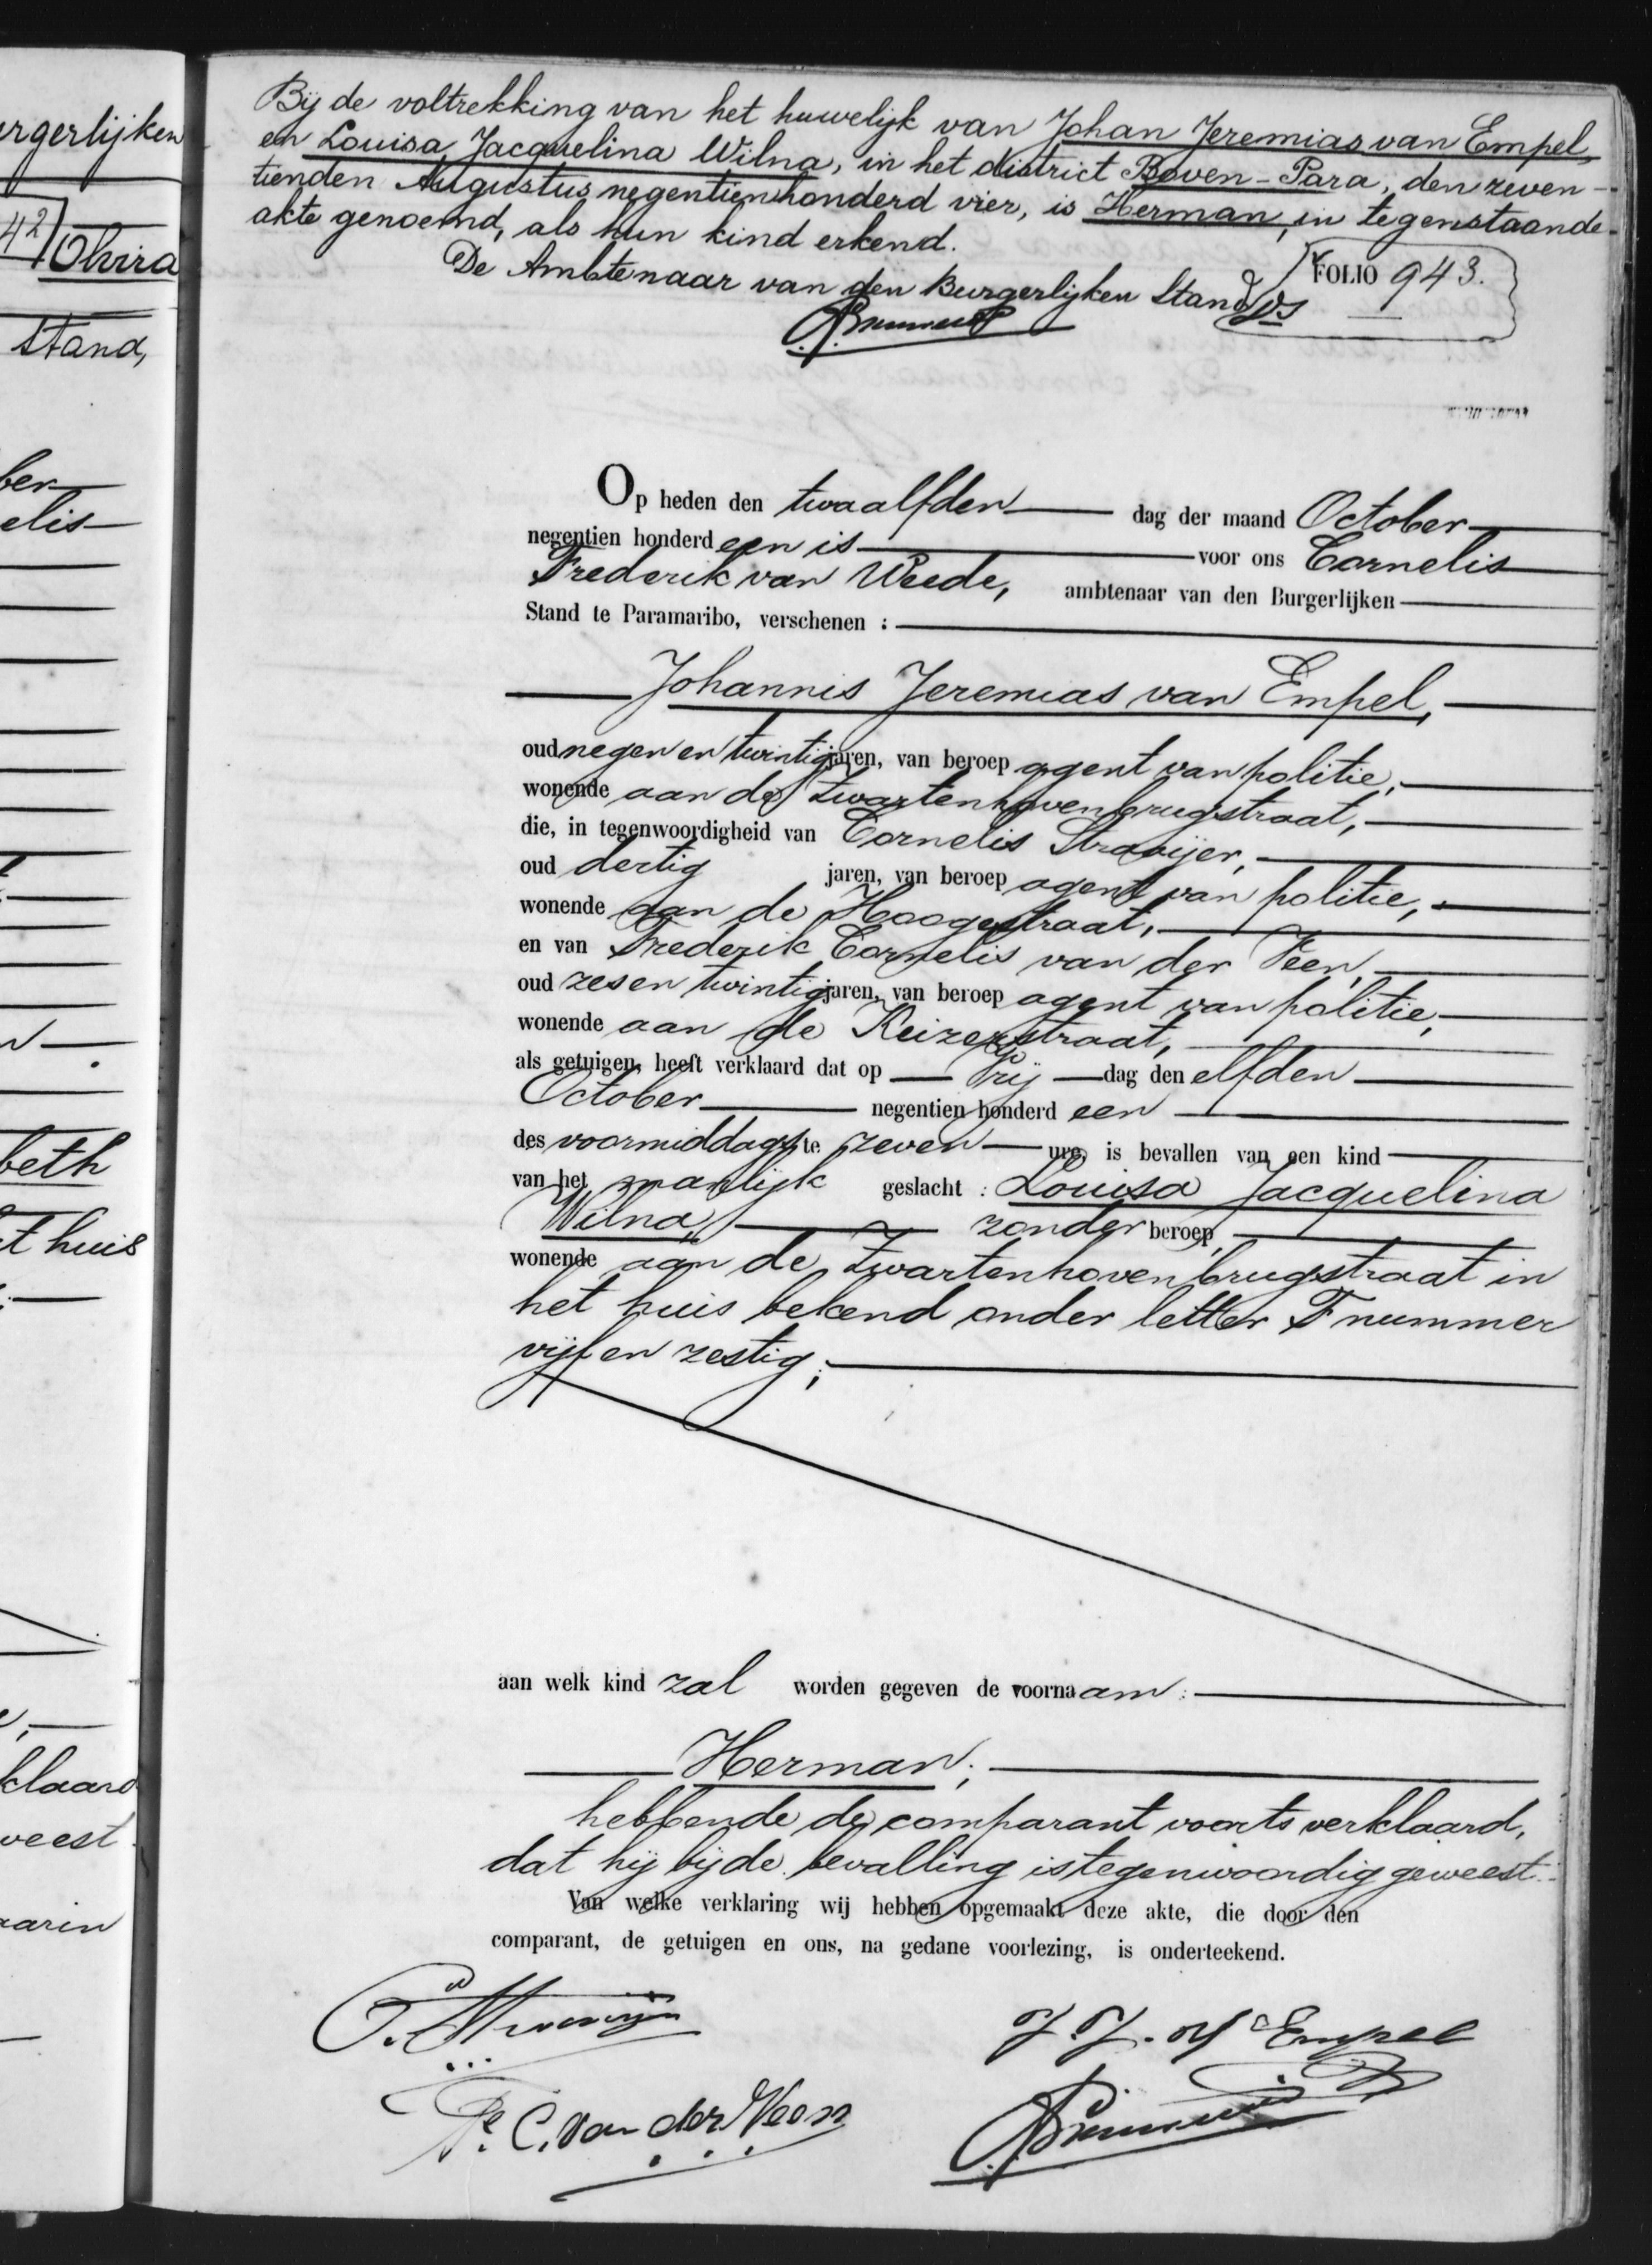 Bij de voltrekking van het huwelijk van Johan Jeremias van Empel,
en Louisa Jacquelina Wilna, in het district Boven-Para, den zeven-
tienden Augustus negentienhonderd vier, is Herman, in tegenstaande
akte genoemd, als hun kind erkend.
De Ambtenaar van den Burgerlijken Stand
FOLIO 943.
Op heden den twaalfden dag der maand October
negentien honderd een is voor ons Cornelis
Frederik van Weede, ambtenaar van den Burgerlijken
Stand te Paramaribo, verschenen :
Johannis Jeremias van Empel,
oud negen en twintig jaren, van beroep agent van politie,
wonende aan de Zwartenhovenbrugstraat,
die, in tegenwoordigheid van Cornelis
oud dertig jaren, van beroep agent van politie,
wonende aan de Hoogestraat,
en van Frederik Cornelis van der Veen,
oud zes en twintig jaren, van beroep agent van politie,
wonende aan de Keizerstraat,
als getuigen, heeft verklaard dat op Vrij dag den elfden
October negentien honderd een
des voormiddags te zeven ure, is bevallen van een kind
van het manlijk geslacht : Louisa Jacquelina
Wilna, zonder beroep,
wonende aan de Zwartenhovenbrugstraat in
het huis bekend onder letter F nummer
vijf en zestig;
aan welk kind zal worden gegeven de voornaam:
Herman;
hebbende de comparant voorts verklaard,
dat hij bij de bevalling is tegenwoordig geweest.
Van welke verklaring wij hebben opgemaakt deze akte, die door den
comparant, de getuigen en ons, na gedane voorlezing, is onderteekend.
J. J. v Empel
F. C. van der Veen
rgerlijken
42
Olvira
Stand,
ber
elis
beth
t huis
klaard
weest
aarin